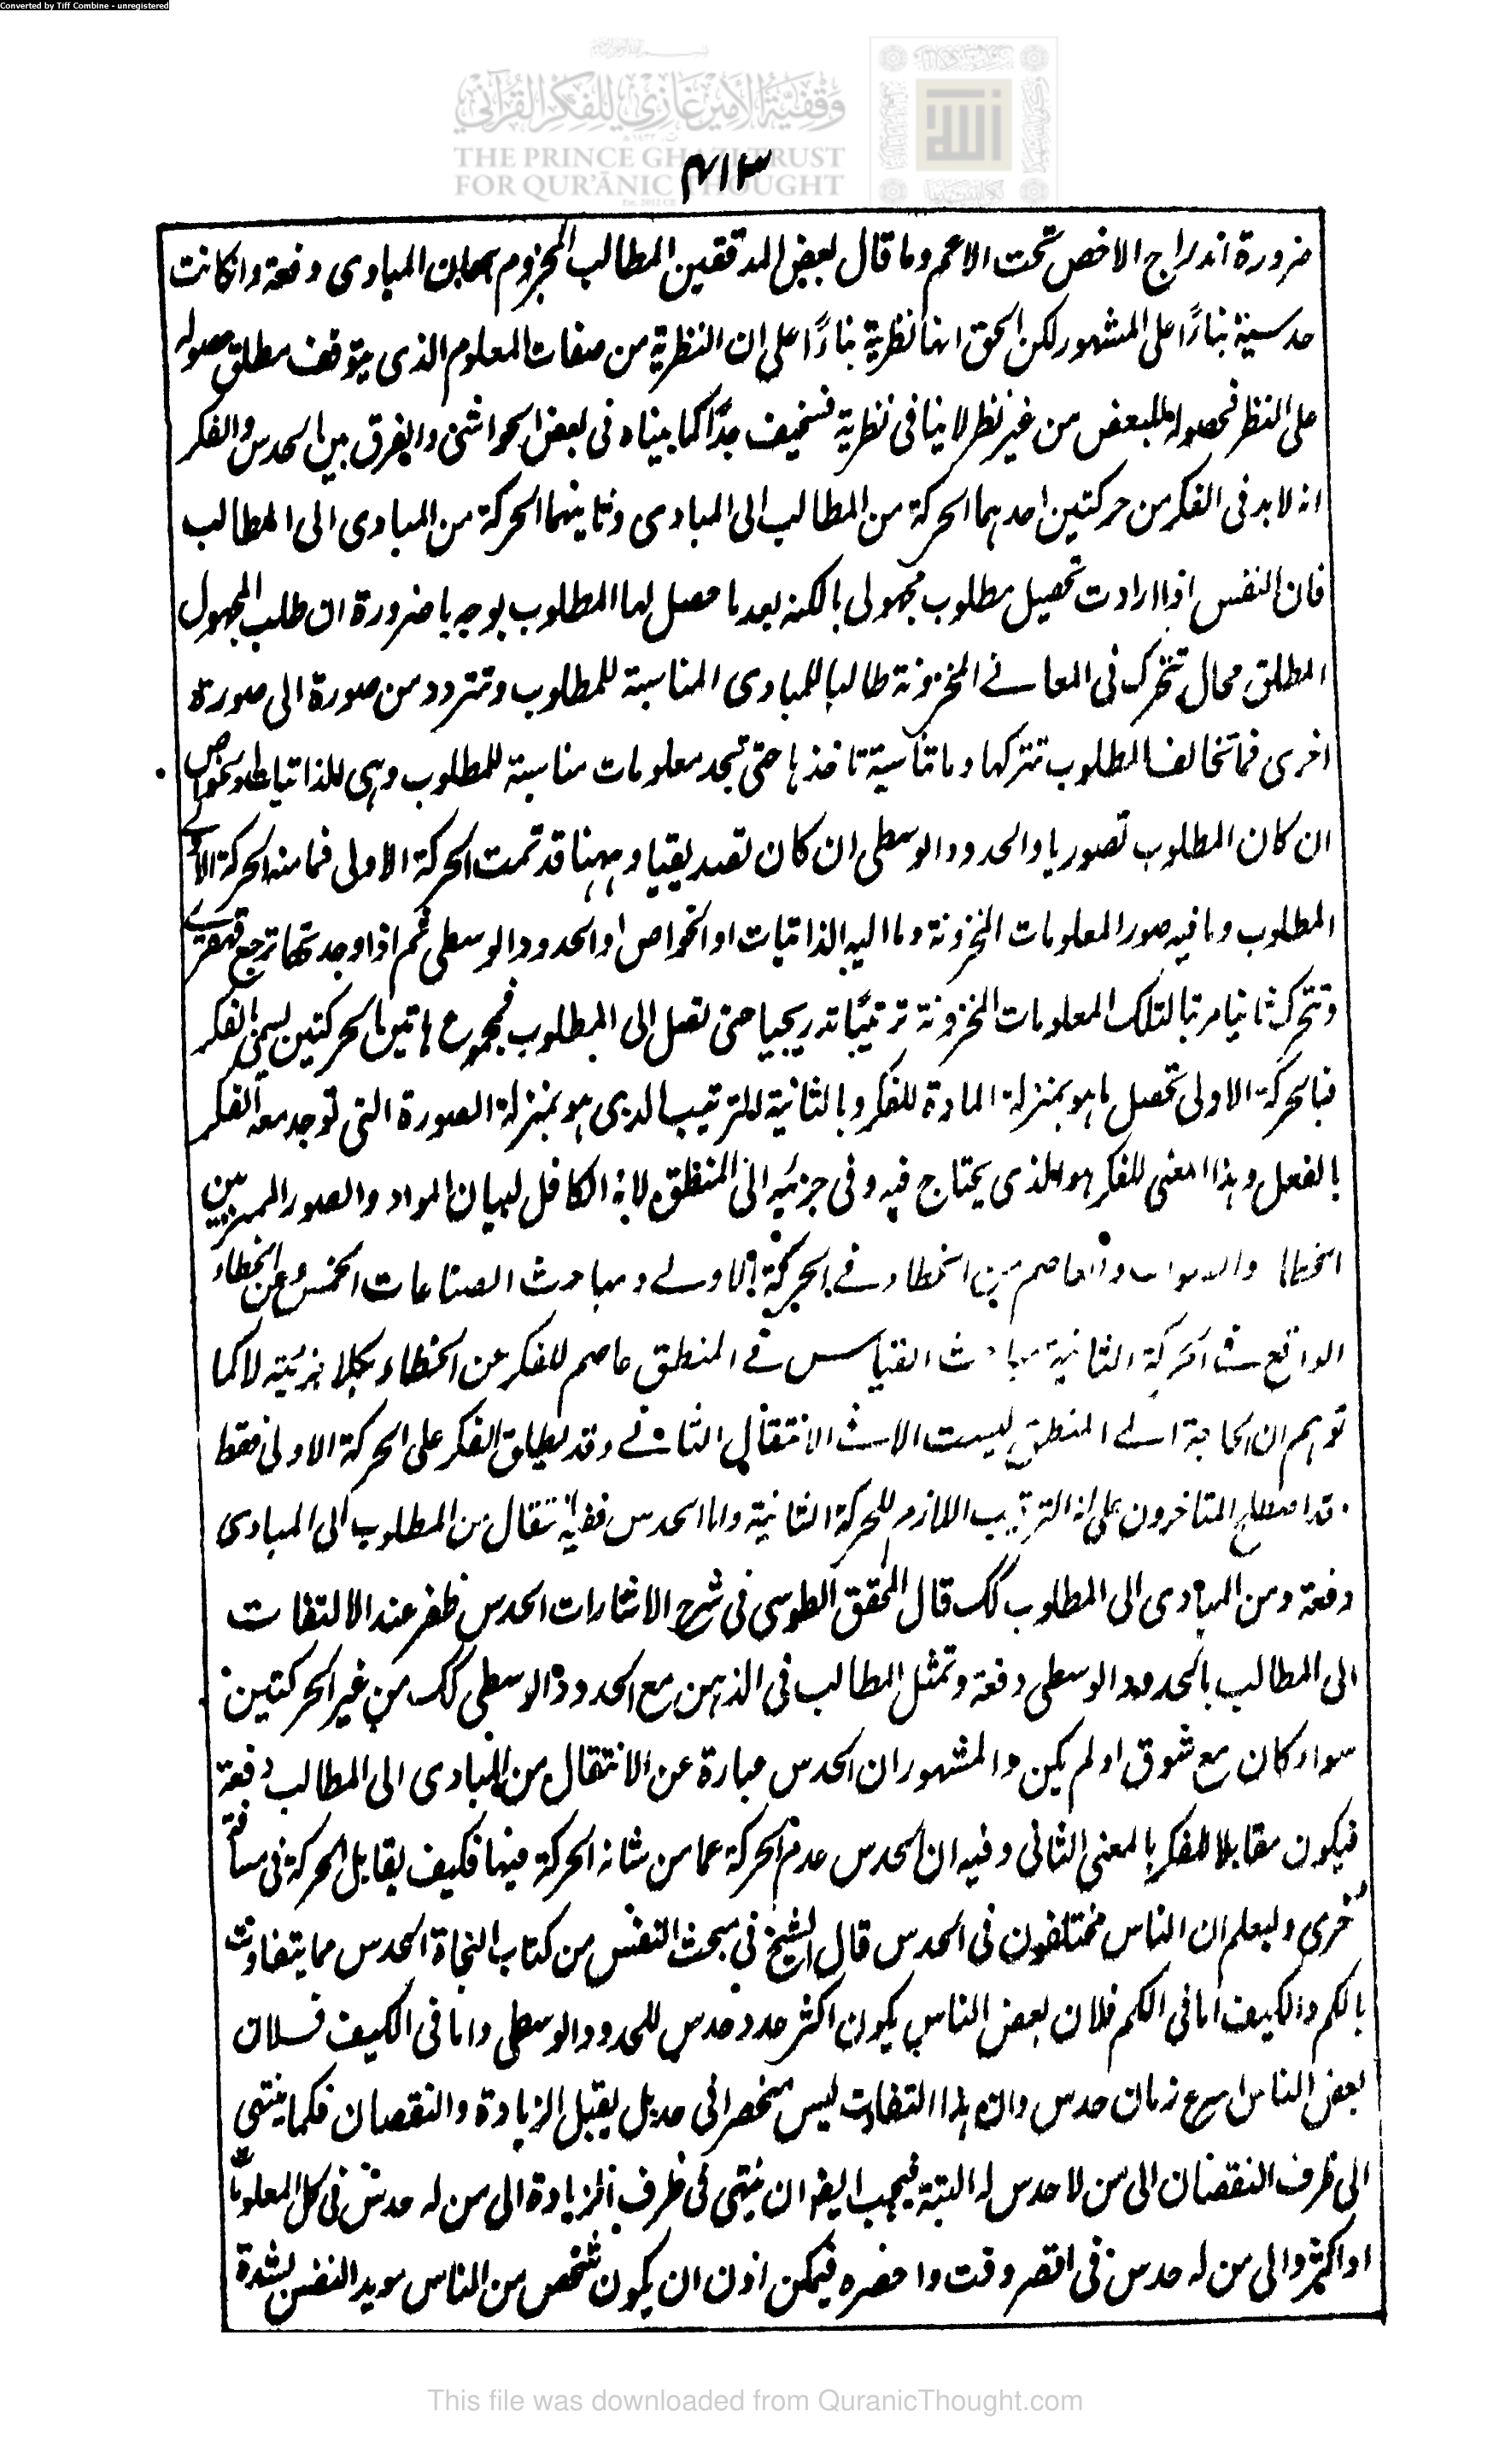 Converted by Tiff Combine - unregistered
وقفية الأمير غازي للفكر القرآني
THE PRINCE GHAZI TRUST
FOR QUR'ĀNIC THOUGHT
٤١٣
ضرورة اندراج الاخص تحت الاعم وما قال بعض المدققين المطالب المجزوم بها من المبادى دفعة وان كانت
حدسية بناءً على المشهور لكن الحق انها نظرية بناءً على ان النظرية من صفات المعلوم الذى يتوقف مطلق حصوله
على النظر فحصوله للبعض من غير نظر لا ينافى نظرية فسخيف جدًّا كما بيناه فى بعض الحواشى والفرق بين الحدس والفكر
انه لابد فى الفكر من حركتين احدهما الحركة من المطالب الى المبادى وثانيهما الحركة من المبادى الى المطالب
فان النفس اذا ارادت تحصيل مطلوب مجهول بالكنه بعد ما حصل لها المطلوب بوجه ما ضرورة ان طلب المجهول
المطلق محال تتحرك فى المعانى المخزونة طالبا للمبادى المناسبة للمطلوب وتتردد من صورة الى صورة
اخرى فما تخالف المطلوب تتركها وما تناسبة تاخذها حتى تجد معلومات مناسبة للمطلوب وهى الذاتيات والخواص
ان كان المطلوب تصوريا والحدود الوسطى ان كان تصديقيا وههنا قد تمت الحركة الاولى فما منه الحركة الاولى
المطلوب وما فيه صور المعلومات المخزونة وما اليه الذاتيات او الخواص او الحدود الوسطى ثم اذا وجدتها ترجع قهقرى
وتتحرك ثانيا مرتبا لتلك المعلومات المخزونة ترتيبًا تدريجيا حتى تصل الى المطلوب فمجموع هاتين الحركتين يسمى بالفكر
فبالحركة الاولى تحصل ما هو بمنزلة المادة للفكر وبالثانية الترتيب الذى هو بمنزلة الصورة التى توجد معه الفكر
بالفعل وهذا المعنى للفكر هو الذى يحتاج فيه وفى جزئيه الى المنطق لانه الكافل لبيان المواد والصور المميز بين
الخطا والصواب والعاصم من الخطاء فى الحركة الاولى ومباحث الصناعات الخمس وعن الخطاء
الواقع فى الحركة الثانية مباحث القياس فى المنطق عاصم للفكر عن الخطاء بكلا جزئيه لا كما
توهم ان الحاجة الى المنطق ليست الا فى الانتقال الثانى وقد يطلق الفكر على الحركة الاولى فقط
وقد اصطلح المتاخرون على انه الترتيب اللازم للحركة الثانية واما الحدس ففيه انتقال من المطلوب الى المبادى
دفعة ومن المبادى الى المطلوب كك قال المحقق الطوسى فى شرح الاشارات الحدس ظفر عند الالتفات
الى المطالب بالحدود الوسطى دفعة وتمثل المطالب فى الذهن مع الحدود الوسطى كك من غير الحركتين
سواء كان مع شوق او لم يكن والمشهور ان الحدس عبارة عن الانتقال من المبادى الى المطالب دفعة
فيكون مقابلا للفكر بالمعنى الثانى وفيه ان الحدس عدم الحركة عما من شانه الحركة فيها فكيف يقابل الحركة فى مسافة
اخرى وليعلم ان الناس مختلفون فى الحدس قال الشيخ فى مبحث النفس من كتاب النجاة الحدس مما يتفاوت
بالكم والكيف اما فى الكم فلان بعض الناس يكون اكثر عدد حدس للحدود الوسطى واما فى الكيف فلان
بعض الناس اسرع زمان حدس وان هذا التفاوت ليس منحصرا فى حد بل يقبل الزيادة والنقصان فكما ينتهى
الى طرف النقصان الى من لا حدس له البتة فيجب ايضا ان ينتهى فى طرف الزيادة الى من له حدس فى كل المعلومات
او اكثر والى من له حدس فى اقصر وقت واحضره فيمكن اذن ان يكون شخص من الناس مويد النفس بشدة
This file was downloaded from QuranicThought.com